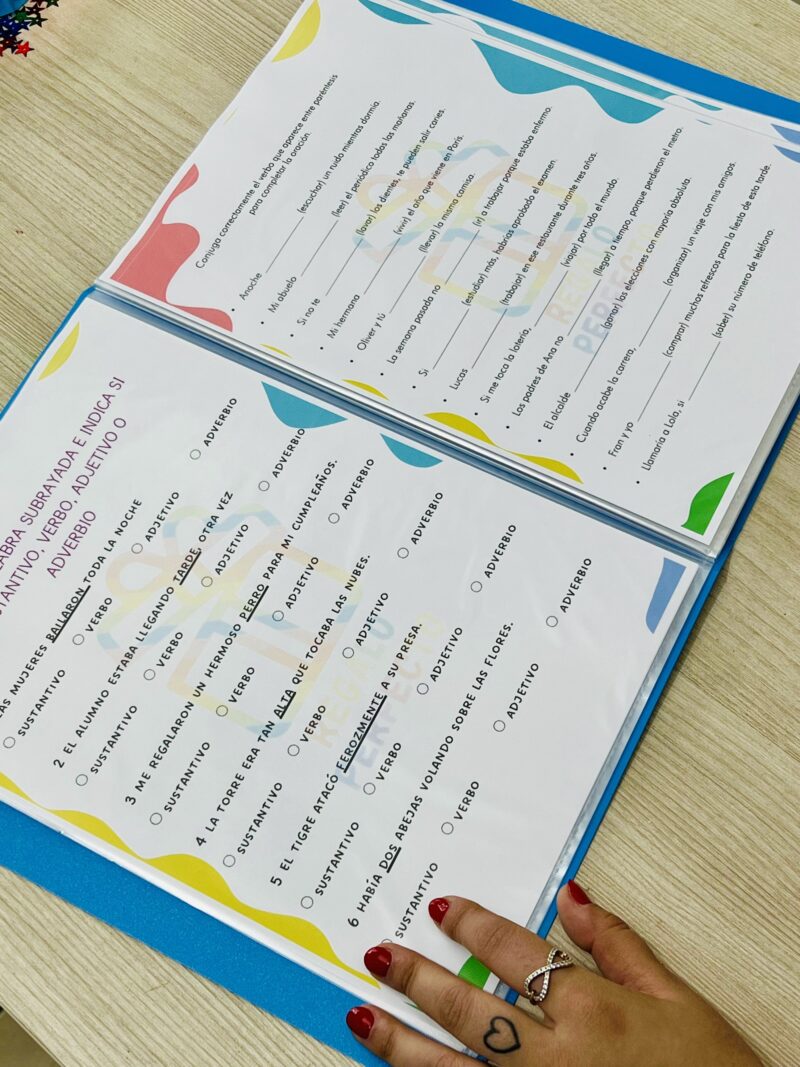 LABRA SUBRAYADA E INDICA SI
STANTIVO, VERBO, ADJETIVO O
ADVERBIO
AS MUJERES BAILARON TODA LA NOCHE
SUSTANTIVO VERBO ADJETIVO ADVERBIO
2 EL ALUMNO ESTABA LLEGANDO TARDE OTRA VEZ
SUSTANTIVO VERBO ADJETIVO ADVERBIO
3 ME REGALARON UN HERMOSO PERRO PARA MI CUMPLEAÑOS.
SUSTANTIVO VERBO ADJETIVO ADVERBIO
4 LA TORRE ERA TAN ALTA QUE TOCABA LAS NUBES.
SUSTANTIVO VERBO ADJETIVO ADVERBIO
5 EL TIGRE ATACÓ FEROZMENTE A SU PRESA.
SUSTANTIVO VERBO ADJETIVO ADVERBIO
6 HABÍA DOS ABEJAS VOLANDO SOBRE LAS FLORES.
SUSTANTIVO VERBO ADJETIVO ADVERBIO
REGALO
PERFECTO
Conjuga correctamente el verbo que aparece entre paréntesis
para completar la oración.
• Anoche ________ (escuchar) un ruido mientras dormía.
• Mi abuelo ________ (leer) el periódico todas las mañanas.
• Si no te ________ (lavar) los dientes, te pueden salir caries.
• Mi hermana ________ (vivir) el año que viene en París.
• Oliver y tú ________ (llevar) la misma camisa.
• La semana pasada no ________ (ir) a trabajar porque estaba enfermo.
• Si ________ (estudiar) más, habrías aprobado el examen.
• Lucas ________ (trabajar) en ese restaurante durante tres años.
• Si me toca la lotería, ________ (viajar) por todo el mundo.
• Los padres de Ana no ________ (llegar) a tiempo, porque perdieron el metro.
• El alcalde ________ (ganar) las elecciones con mayoría absoluta.
• Cuando acabe la carrera, ________ (organizar) un viaje con mis amigos.
• Fran y yo ________ (comprar) muchos refrescos para la fiesta de esta tarde.
• Llamaría a Lola, si ________ (saber) su número de teléfono.
REGALO
PERFECTO